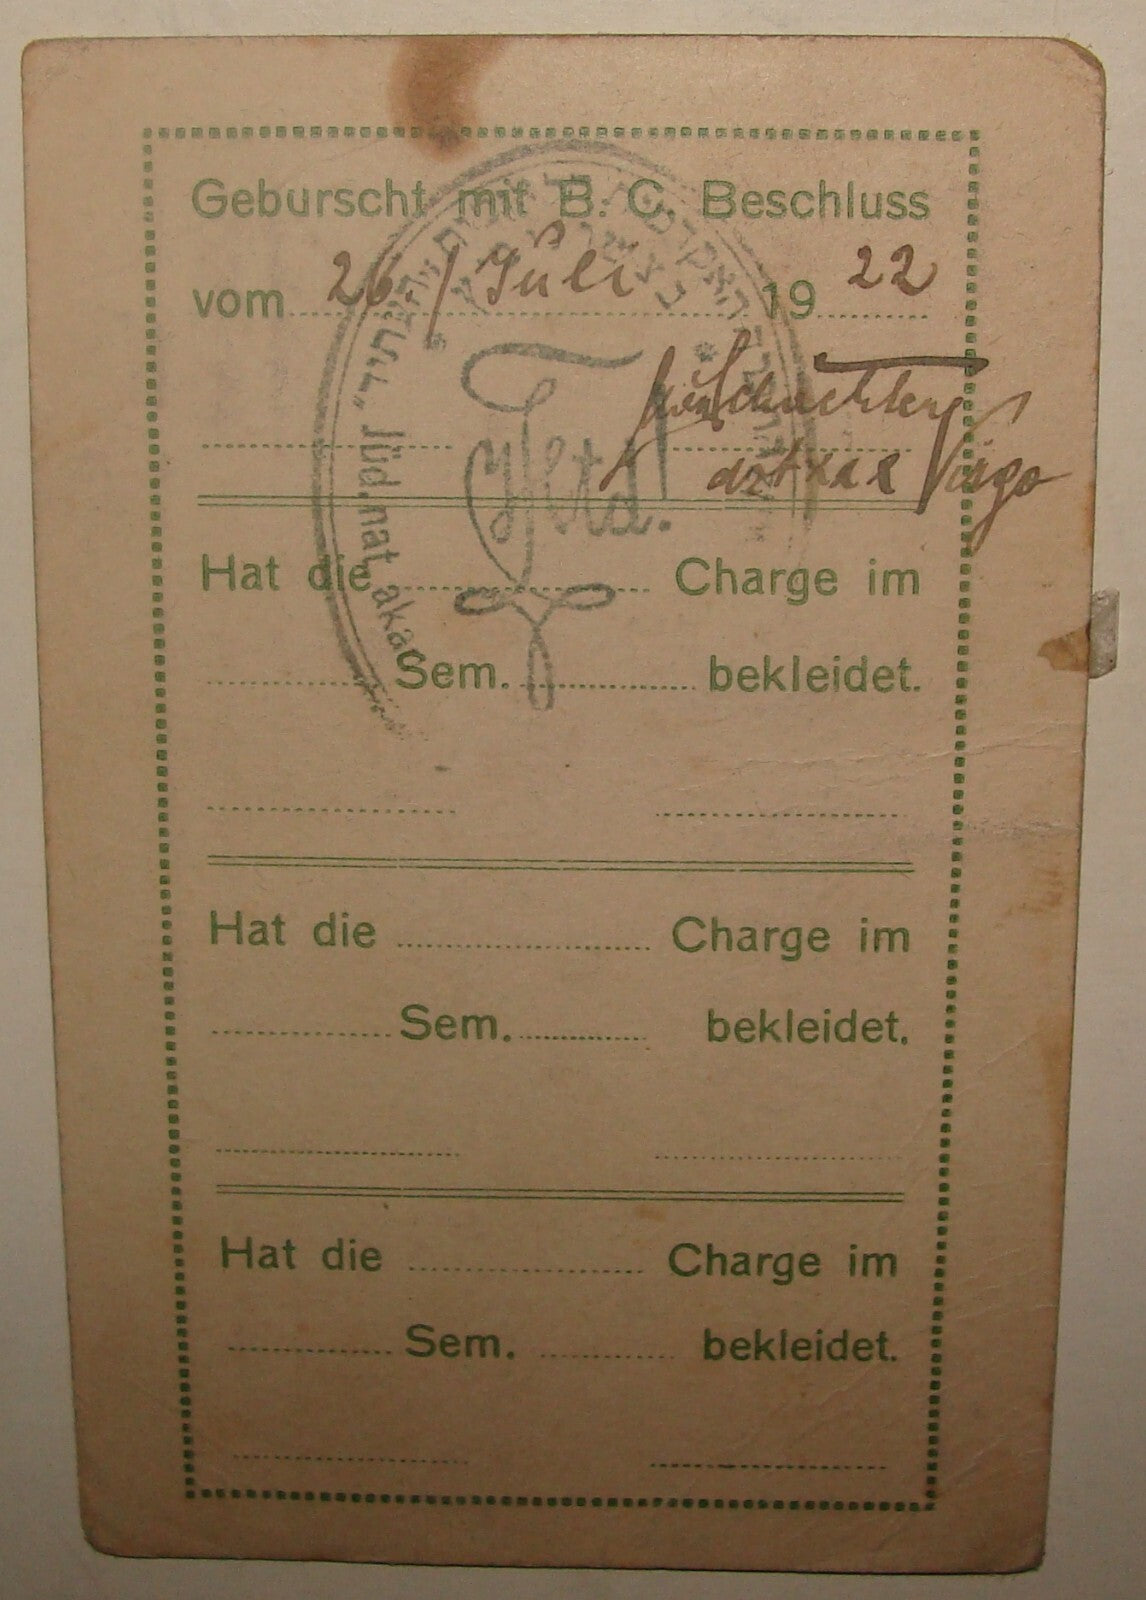 Geburscht mit B. C. Beschluss
vom 26./Juli 1922
Hat die Charge im
Sem. bekleidet.
Hat die Charge im
Sem. bekleidet.
Hat die Charge im
Sem. bekleidet.
"העתיד" Jüd. nat. akad.